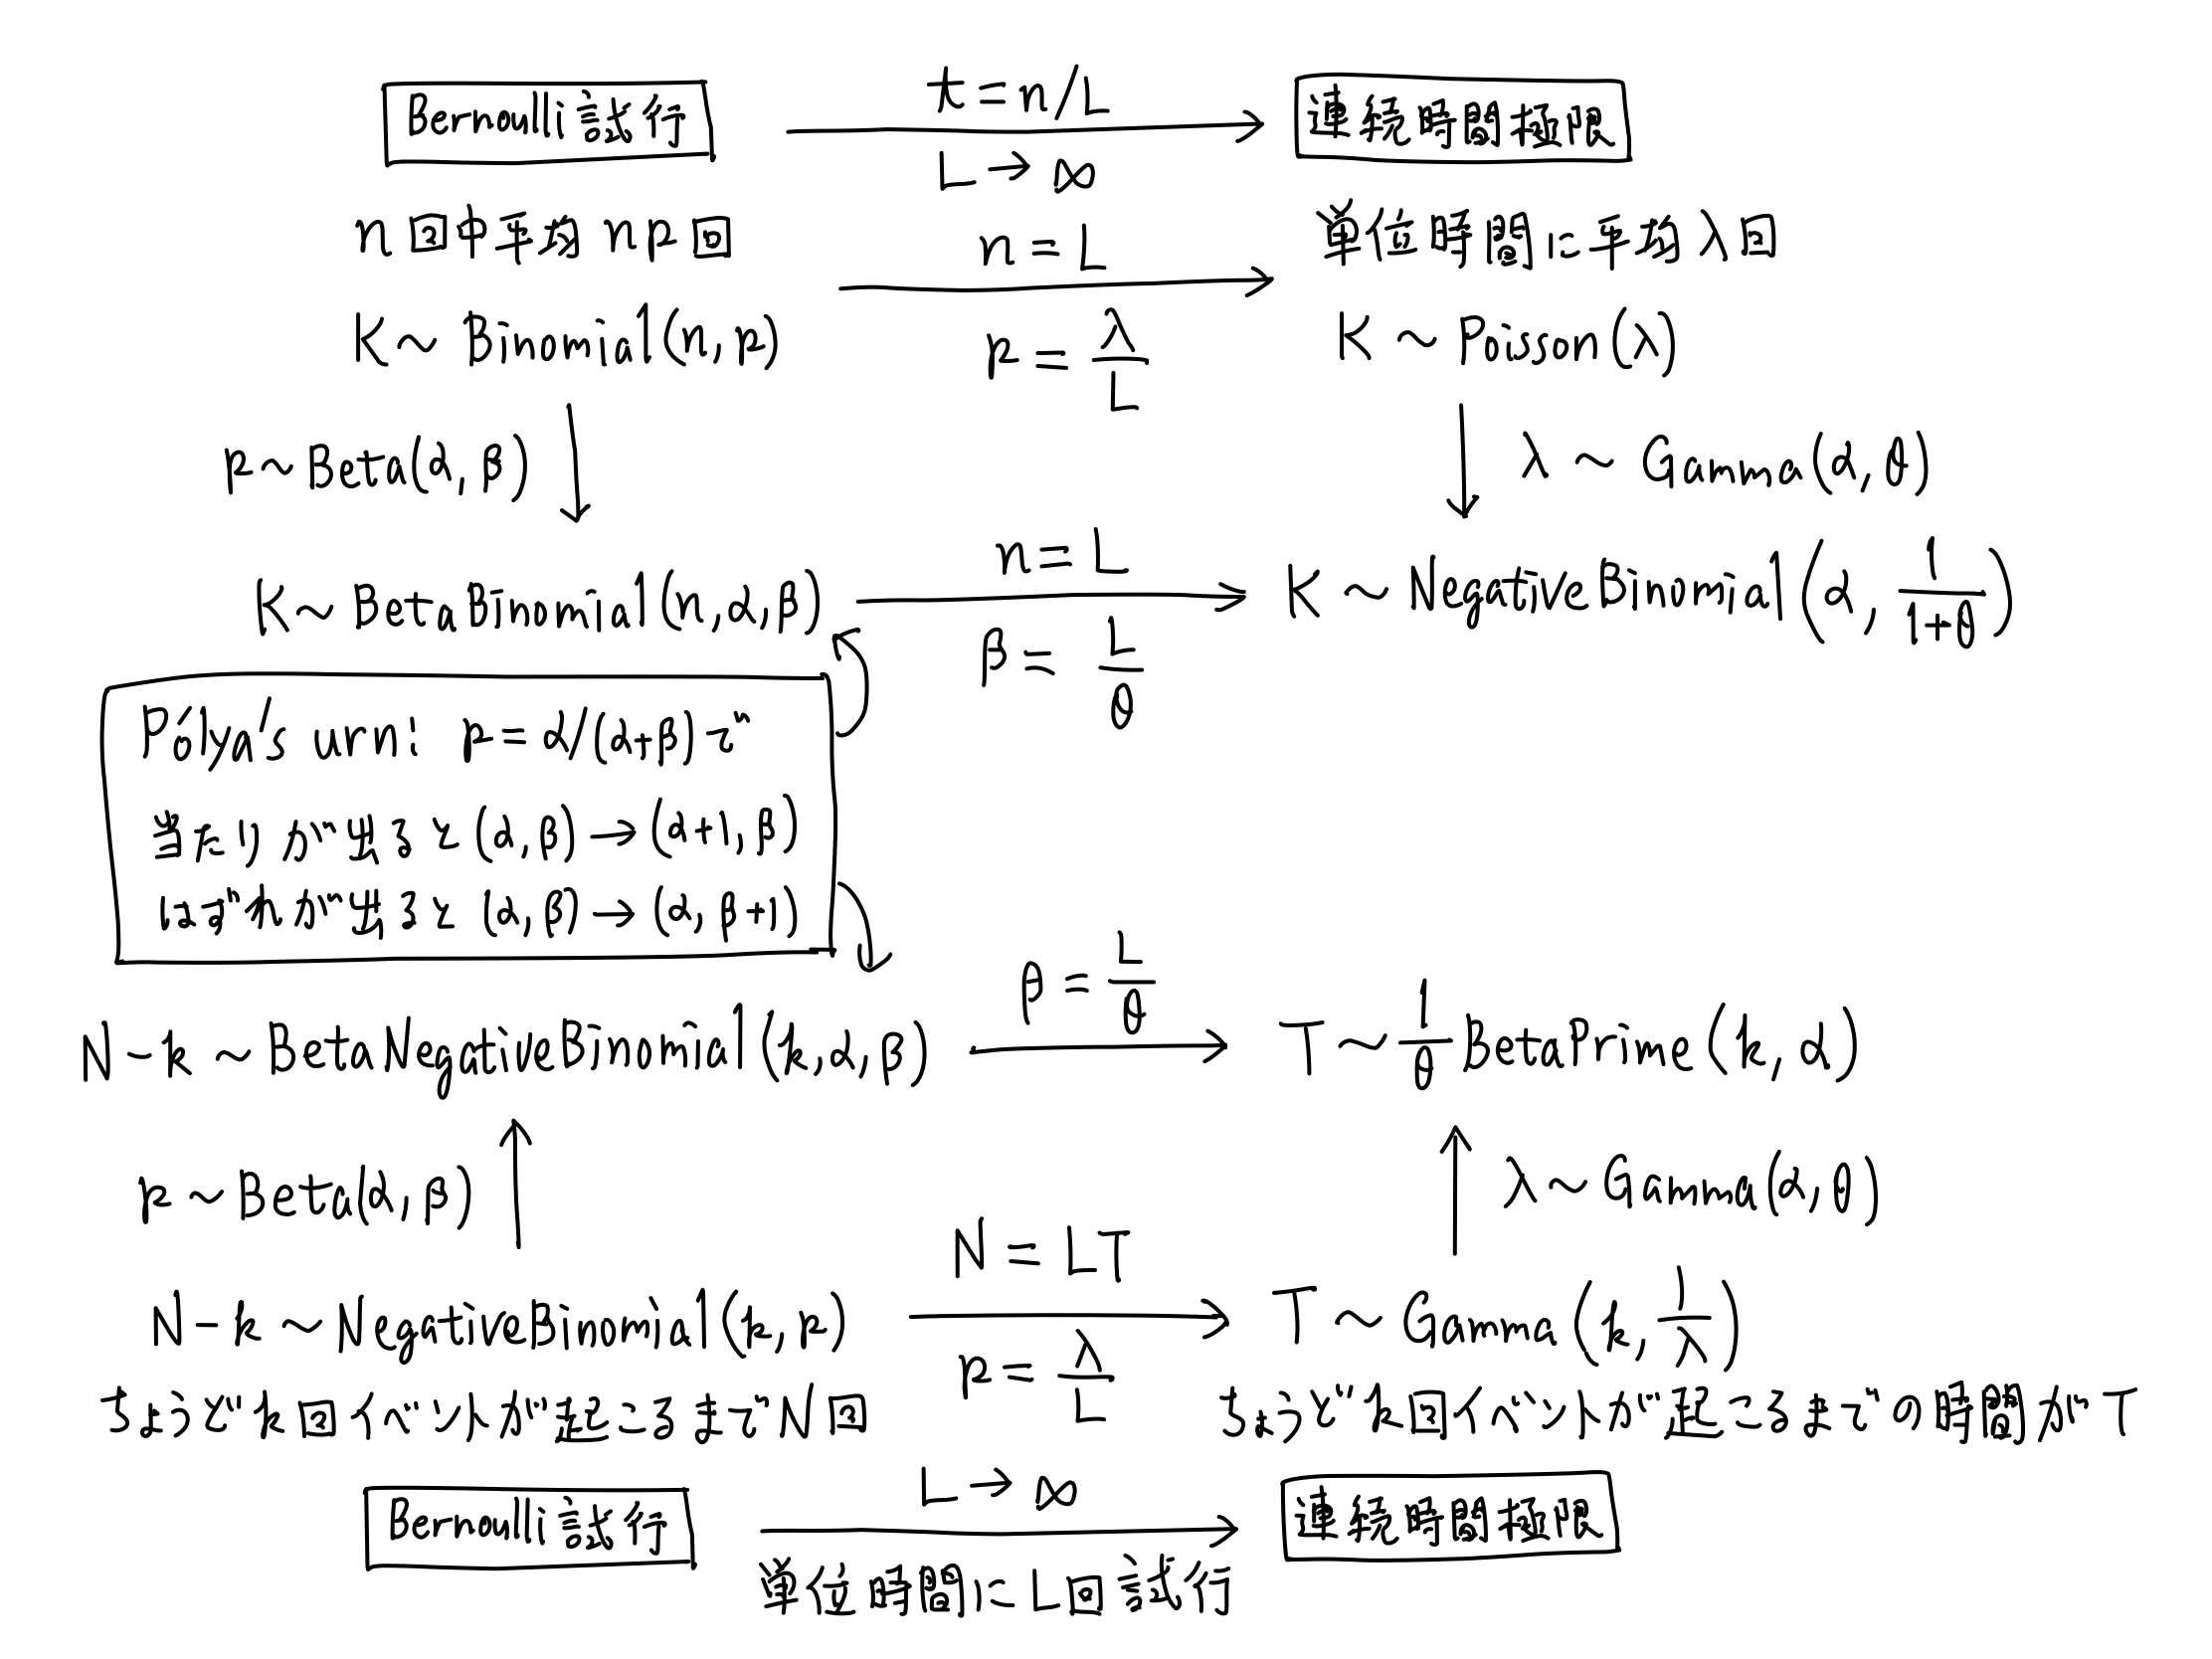 Bernoulli試行
t=n/L
L→∞
連続時間極限
n回中平均np回
n=L
単位時間に平均λ回
K~Binomial(n,p)
p=λ/L
K~Poisson(λ)
p~Beta(α,β)
↓
↓
λ~Gamma(α,θ)
K~BetaBinomial(n,α,β)
n=L
β=L/θ
K~NegativeBinomial(α,1/(1+θ))
Pólya's urn: p=α/(α+β)で
当たりが出ると(α,β)→(α+1,β)
はずれが出ると(α,β)→(α,β+1)
N-k~BetaNegativeBinomial(k,α,β)
β=L/θ
T~1/θ BetaPrime(k,α)
p~Beta(α,β)
↑
↑
λ~Gamma(α,θ)
N-k~NegativeBinomial(k,p)
N=LT
p=λ/L
T~Gamma(k,1/λ)
ちょうどk回イベントが起こるまでN回
ちょうどk回イベントが起こるまでの時間がT
Bernoulli試行
L→∞
単位時間にL回試行
連続時間極限